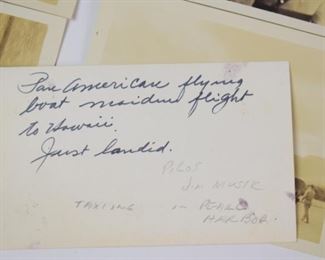 Pan American flying
boat maiden flight
to Hawaii.
Just landed.
PILOT
JIM MUSIK
TAXIING in PEARL
HARBOR.